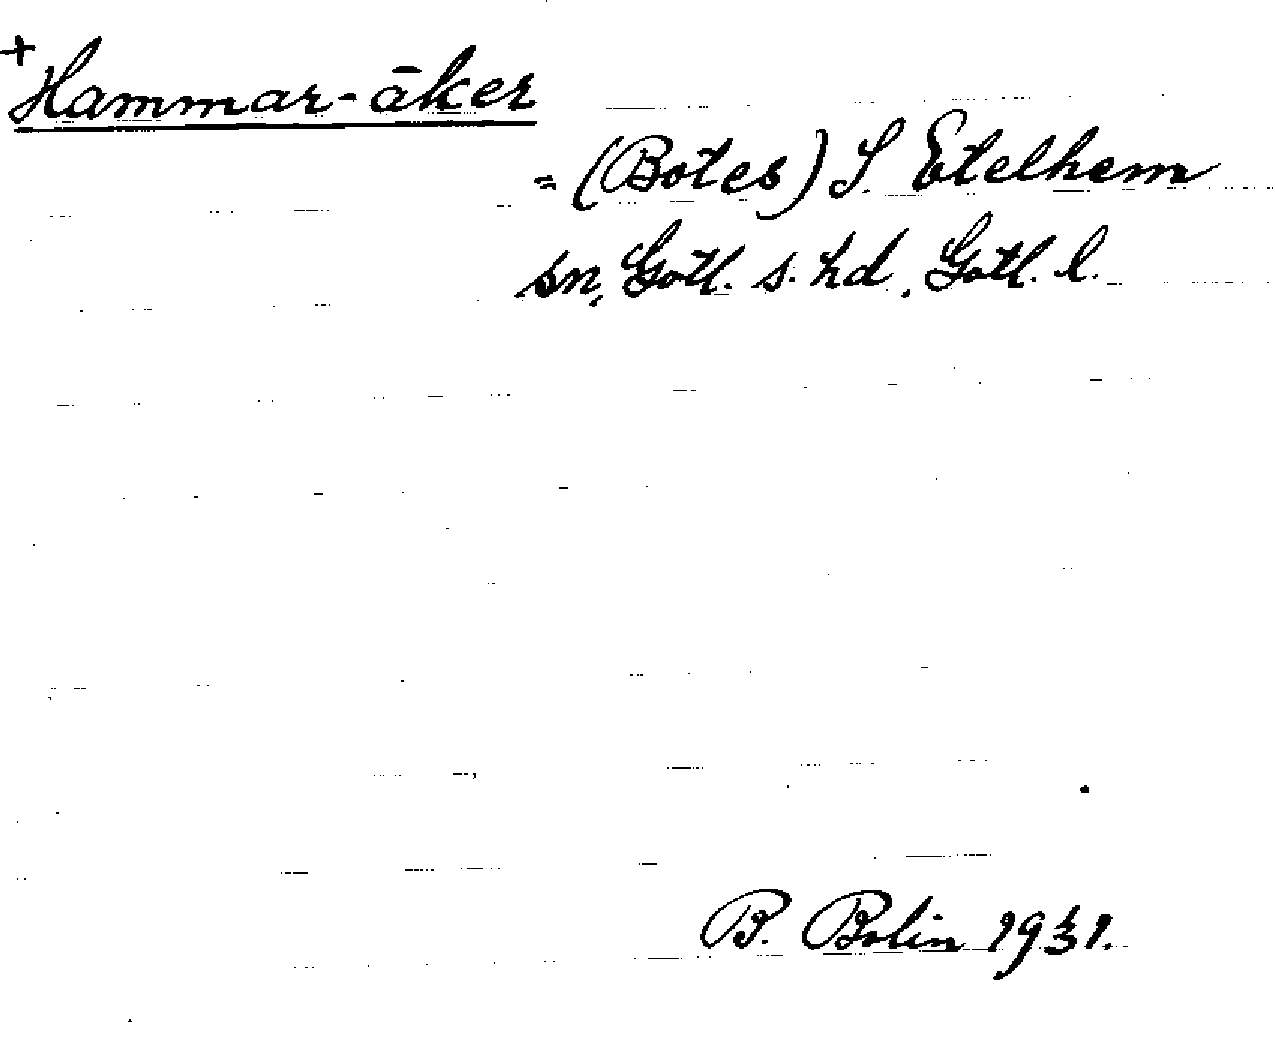 +
Hammar-åker
= (Botes) S. Etelhem
sn, Gotl. s. hd, Gotl. l.
B. Bolin 1931.